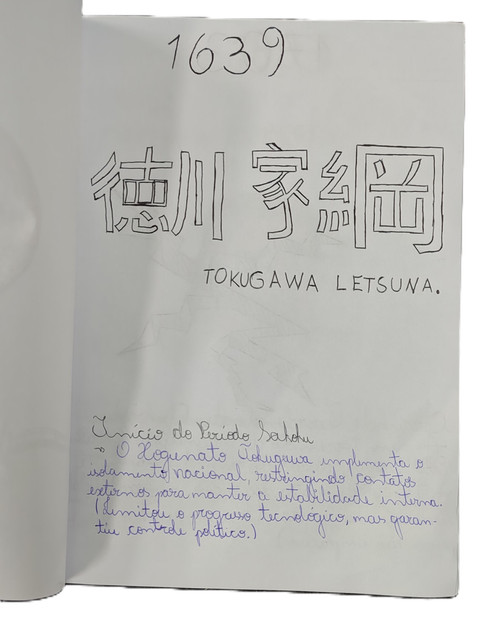 1639
徳川 家綱
TOKUGAWA LETSUNA.
Início do Período Sakoku
→ O Xogunato Tokugawa implementa o
isolamento nacional, restringindo contatos
externos para manter a estabilidade interna.
(Limitou o progresso tecnológico, mas garan-
tiu controle político.)